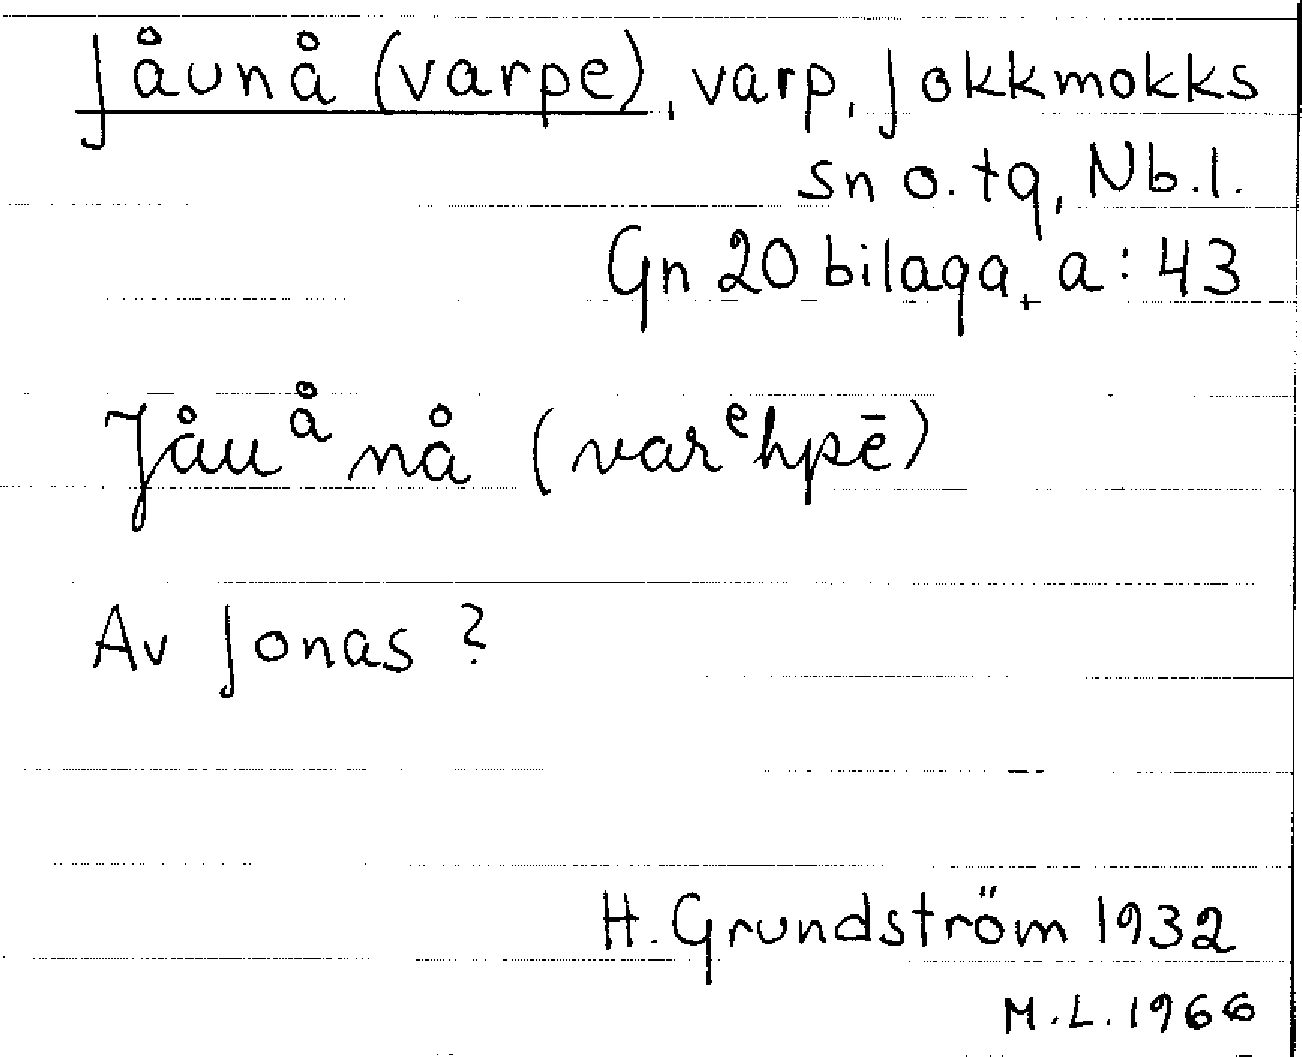 Jåunå (varpe), varp, Jokkmokks
sn o. tg, Nb.l.
Gn 20 bilaga, a: 43
Jåuånå (varᵉhpē)
Av Jonas?
H. Grundström 1932
M.L. 1966